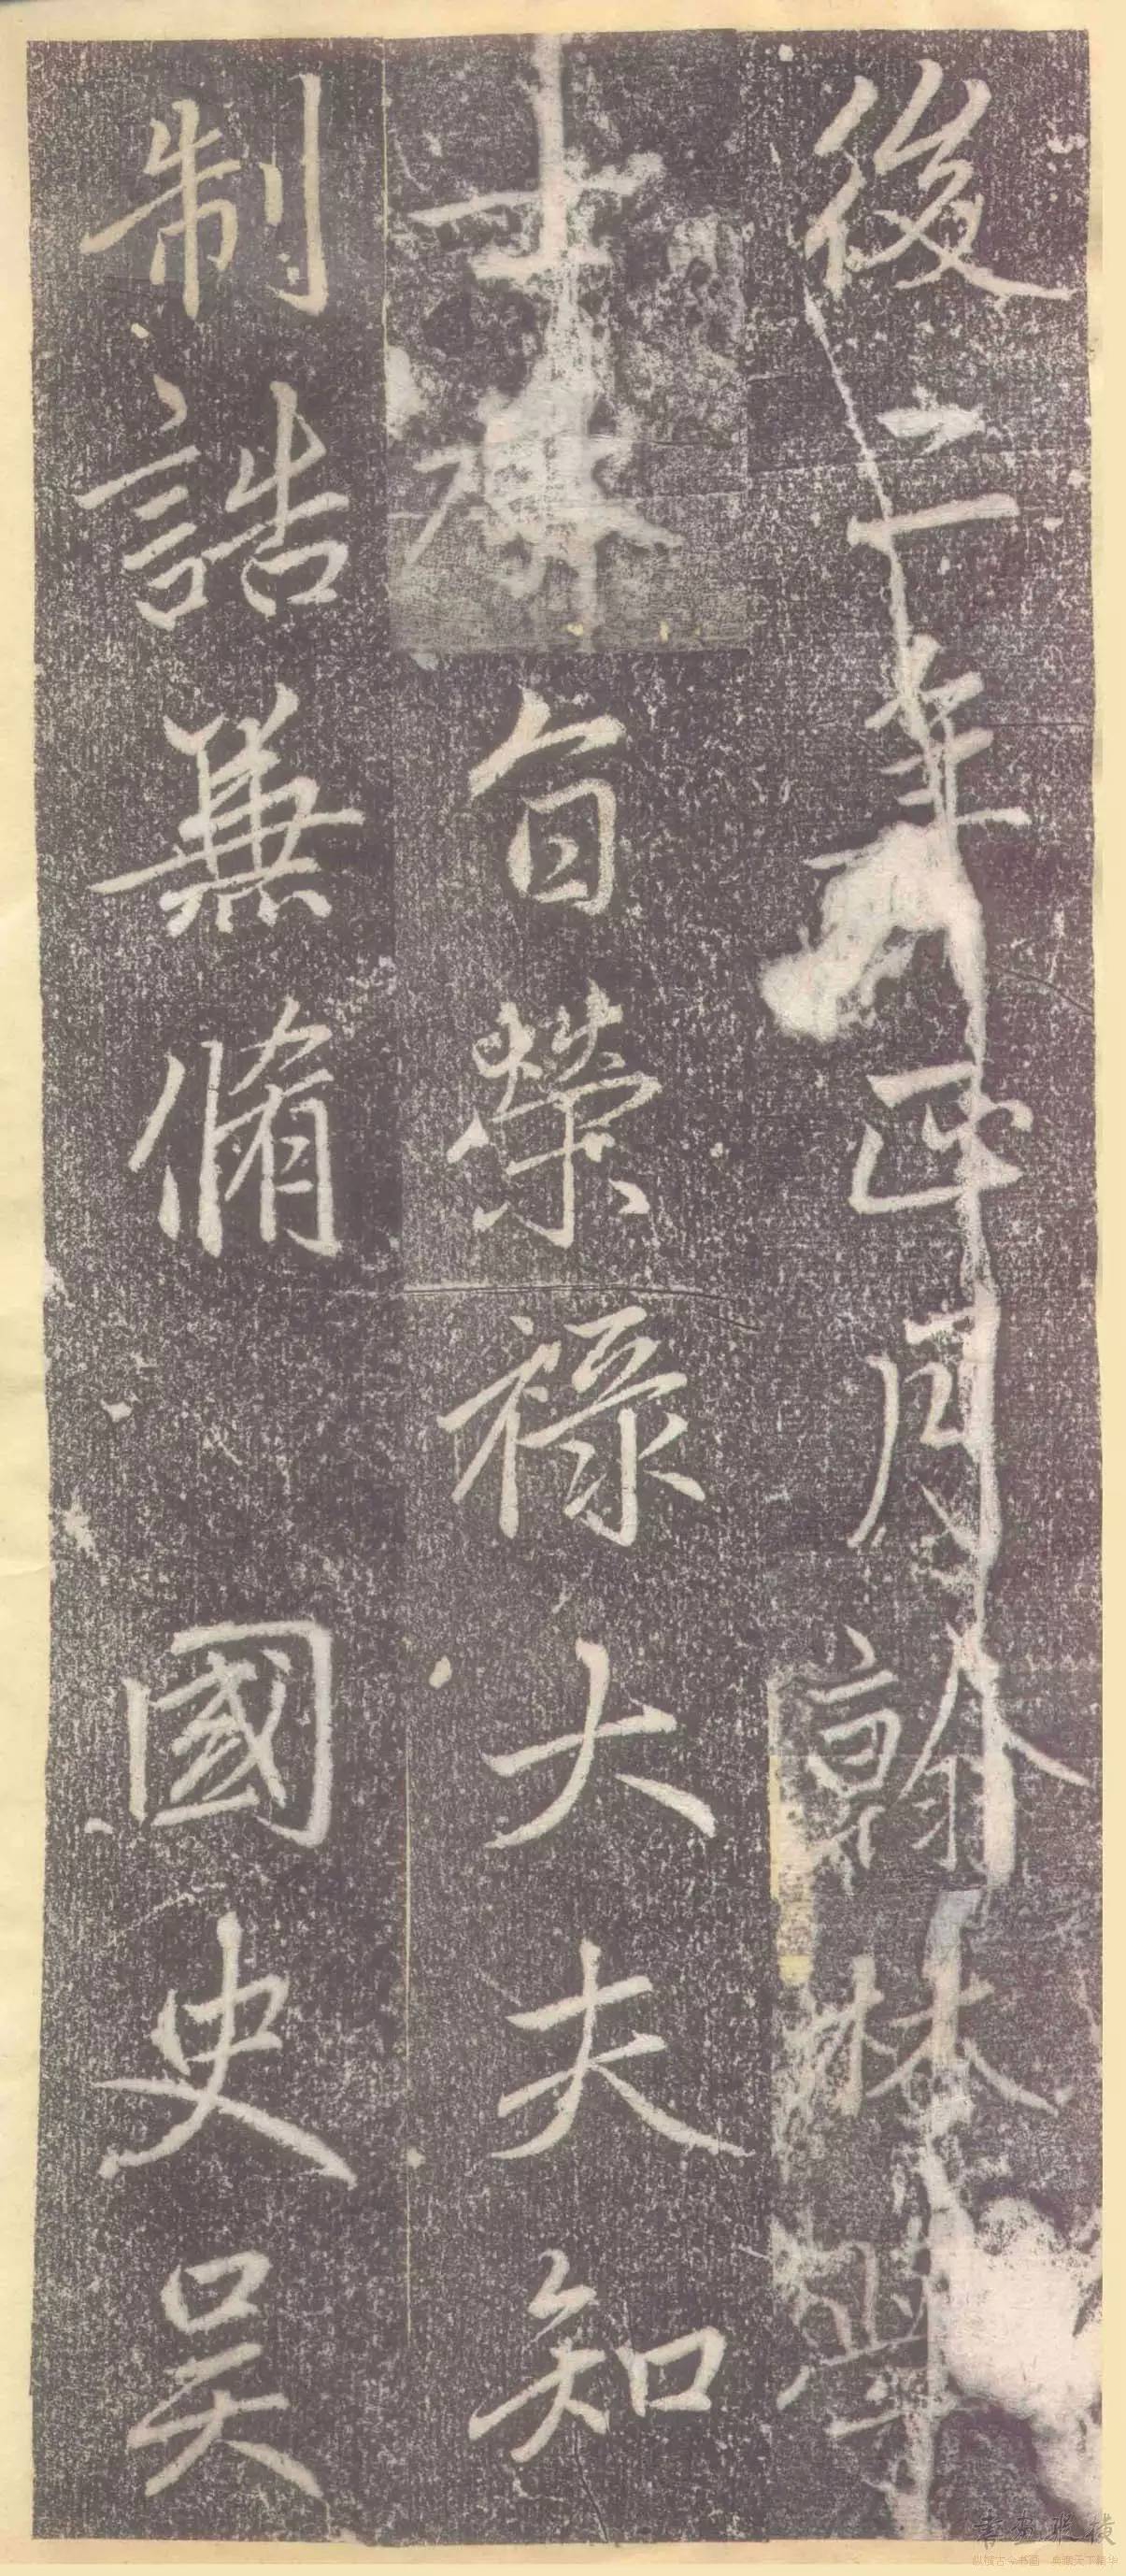 後二年正月翰林學
士承旨榮祿大夫知
制誥兼脩 國史吴